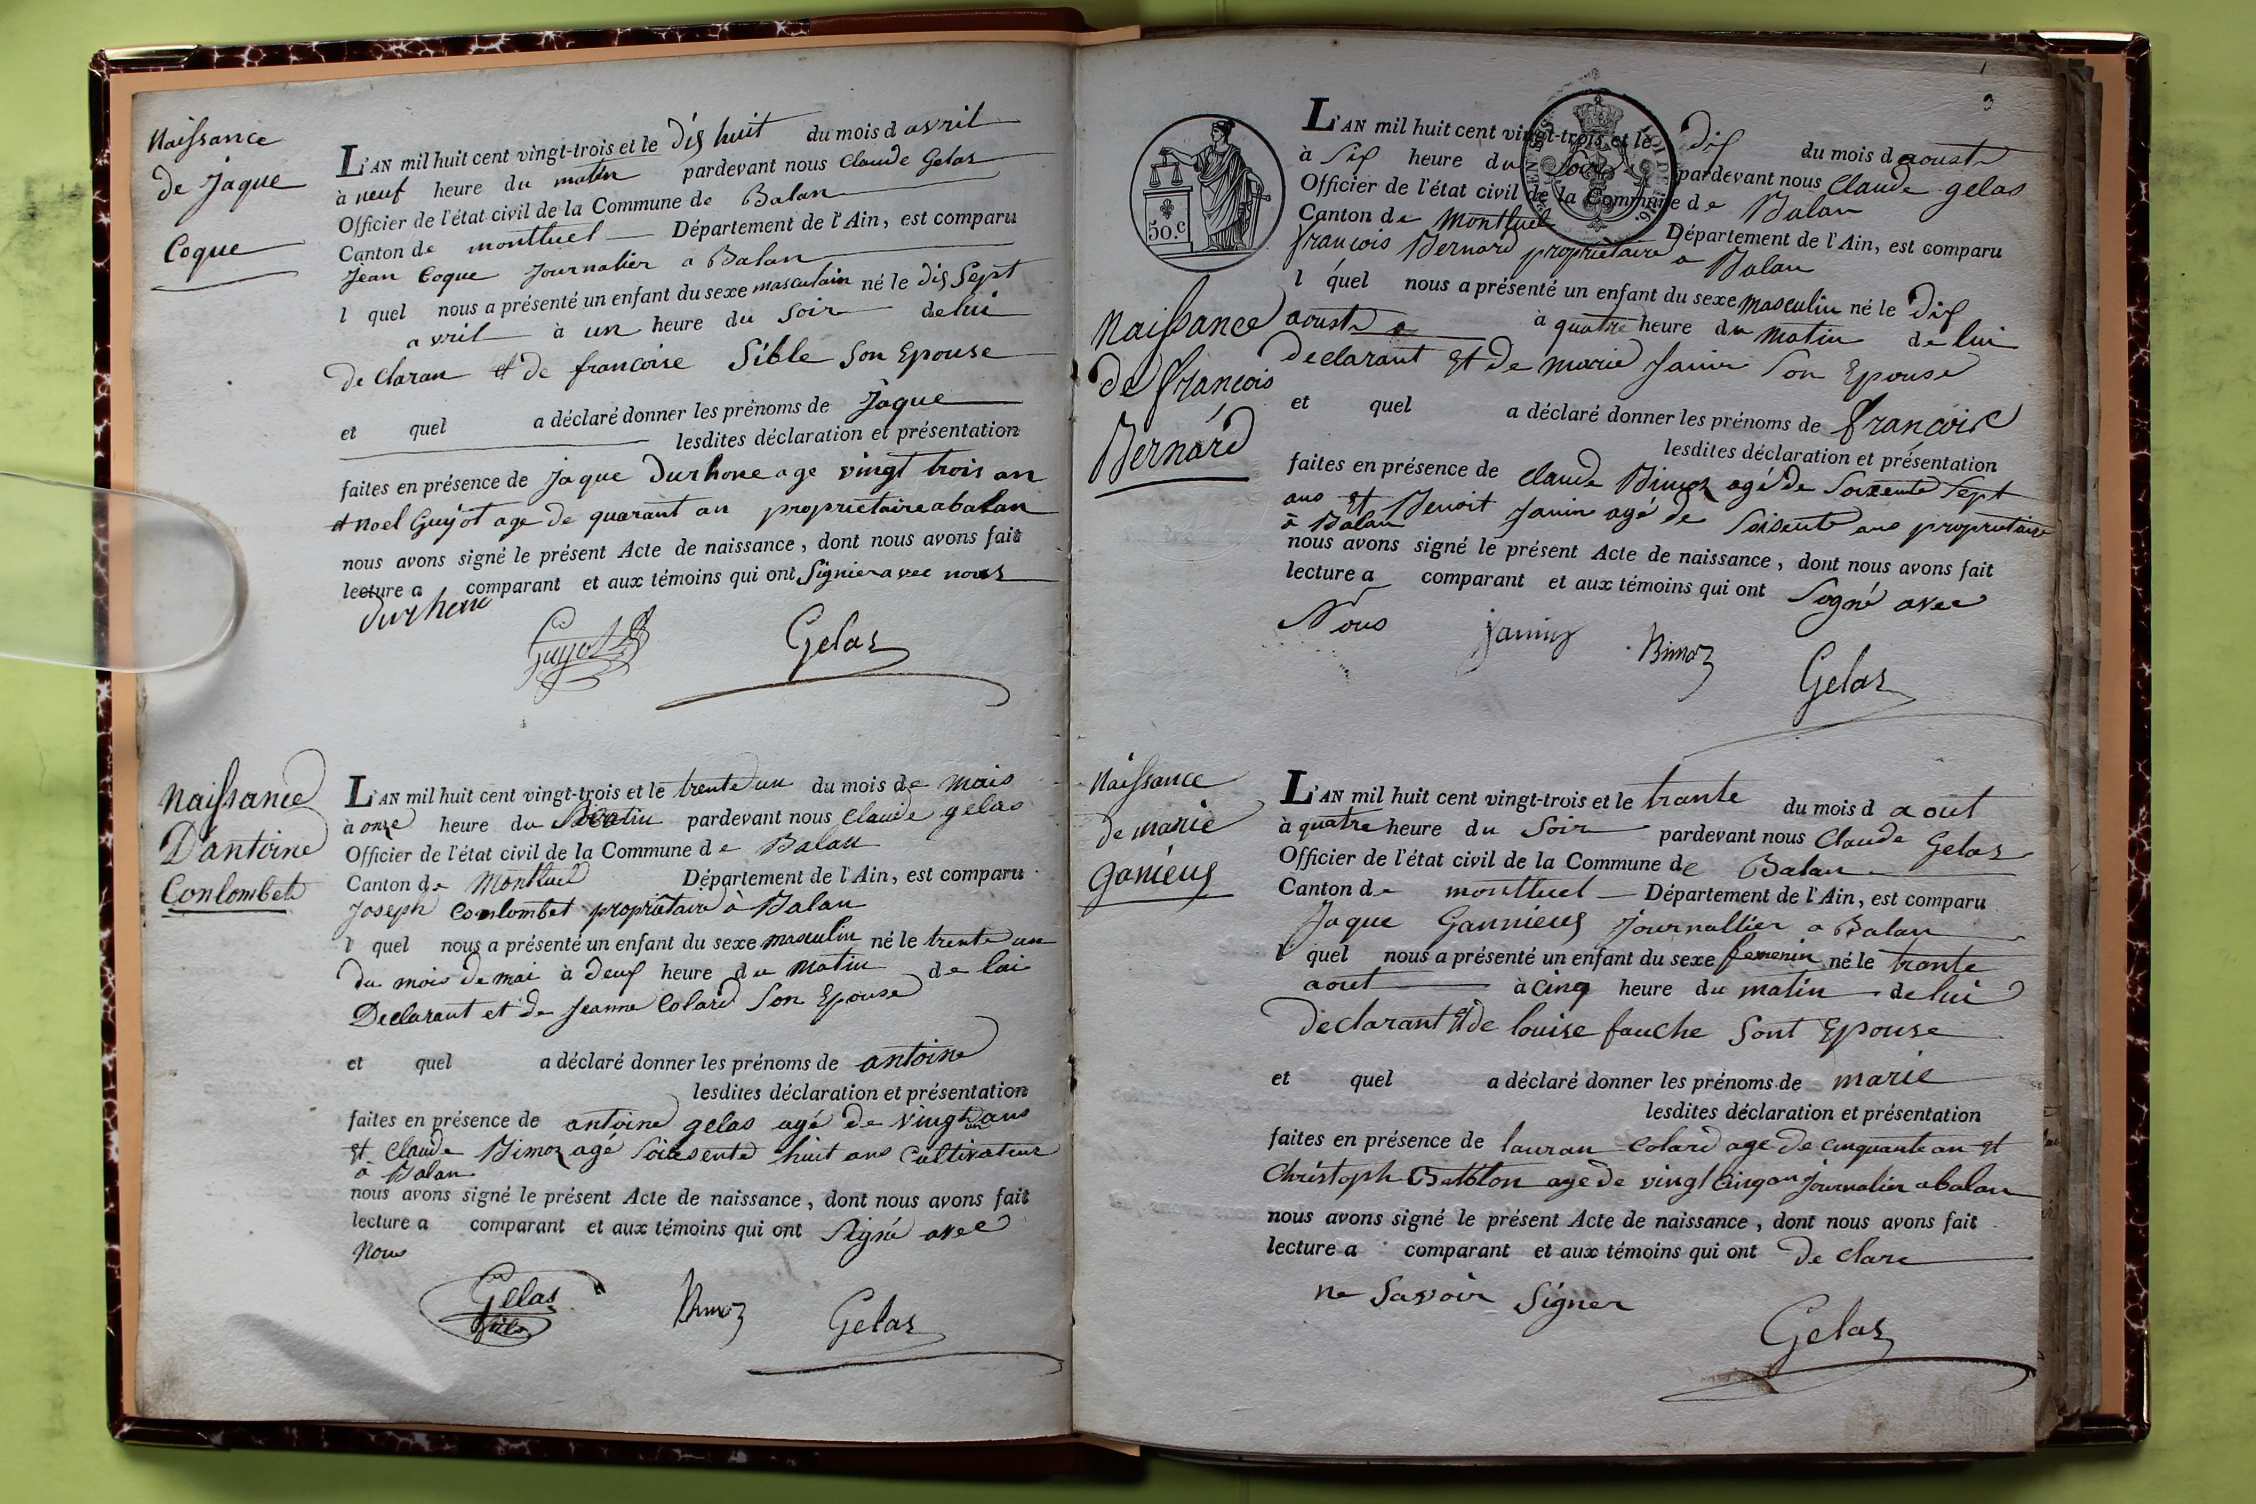 Naissance
de Jaque
Coque
L'AN mil huit cent vingt-trois et le dix huit du mois d avril
à neuf heure du matin pardevant nous Claude Gelas
Officier de l'état civil de la Commune de Balan
Canton de montluel Département de l'Ain, est comparu
Jean Coque Journalier a Balan
l quel nous a présenté un enfant du sexe masculain né le dix Sept
avril à un heure du Soir de lui
de claran et de francoise Sible Son Epouse
et quel a déclaré donner les prénoms de Jaque
lesdites déclaration et présentation
faites en présence de Jaque Durhone age vingt trois an
et noel Guyot age de quarant an proprietaire a balan
nous avons signé le présent Acte de naissance, dont nous avons fait
lecture a comparant et aux témoins qui ont Signier avec nous
Durhone
Guyot
Gelas
Naissance
D'antoine
Conlombet
L'AN mil huit cent vingt-trois et le trente un du mois de mais
à onze heure du matin pardevant nous Claude gelas
Officier de l'état civil de la Commune de Balan
Canton de Montluel Département de l'Ain, est comparu
Joseph Conlombet propriétaire à Balan
l quel nous a présenté un enfant du sexe masculin né le trente un
du mois de mai à deux heure du matin de lui
Declarant et de Jeanne Colard Son Epouse
et quel a déclaré donner les prénoms de antoine
lesdites déclaration et présentation
faites en présence de antoine gelas agé de vingt un ans
et Claude Bimoz agé Soixsente huit ans Cultivateur
à Balan
nous avons signé le présent Acte de naissance, dont nous avons fait
lecture a comparant et aux témoins qui ont Signé avec
Nous
Gelas
fils
Bimoz
Gelas
3
50.c
Naissance
de françois
Bernard
L'AN mil huit cent vingt-trois et le dix du mois d aoust
à Six heure du Soir pardevant nous Claude gelas
Officier de l'état civil de la Commune de Balan
Canton de Montluel Département de l'Ain, est comparu
françois Bernard propriétaire a Balan
l quel nous a présenté un enfant du sexe masculin né le dix
aoust à quatre heure du matin de lui
declarant et de marie Janin Son Epouse
et quel a déclaré donner les prénoms de françois
lesdites déclaration et présentation
faites en présence de Claude Bimoz agé de Soixente Sept
ans et Benoit Janin agé de Soisente ans propriétaire
à Balan
nous avons signé le présent Acte de naissance, dont nous avons fait
lecture a comparant et aux témoins qui ont Signé avec
Nous
janin
Bimoz
Gelas
Naissance
de marie
ganieux
L'AN mil huit cent vingt-trois et le trante du mois d aout
à quatre heure du Soir pardevant nous Claude Gelas
Officier de l'état civil de la Commune de Balan
Canton de montluel Département de l'Ain, est comparu
Jaque Gannieux Journallier a Balan
l quel nous a présenté un enfant du sexe femenin né le trante
aout à Cinq heure du matin de lui
declarant et de louise fauche Sont Epouse
et quel a déclaré donner les prénoms de marie
lesdites déclaration et présentation
faites en présence de lauran Colard age de cinquante an et
Christoph age de vingt Cinq an Journalier a balan
nous avons signé le présent Acte de naissance, dont nous avons fait
lecture a comparant et aux témoins qui ont de clare
ne Savoir Signer
Gelas